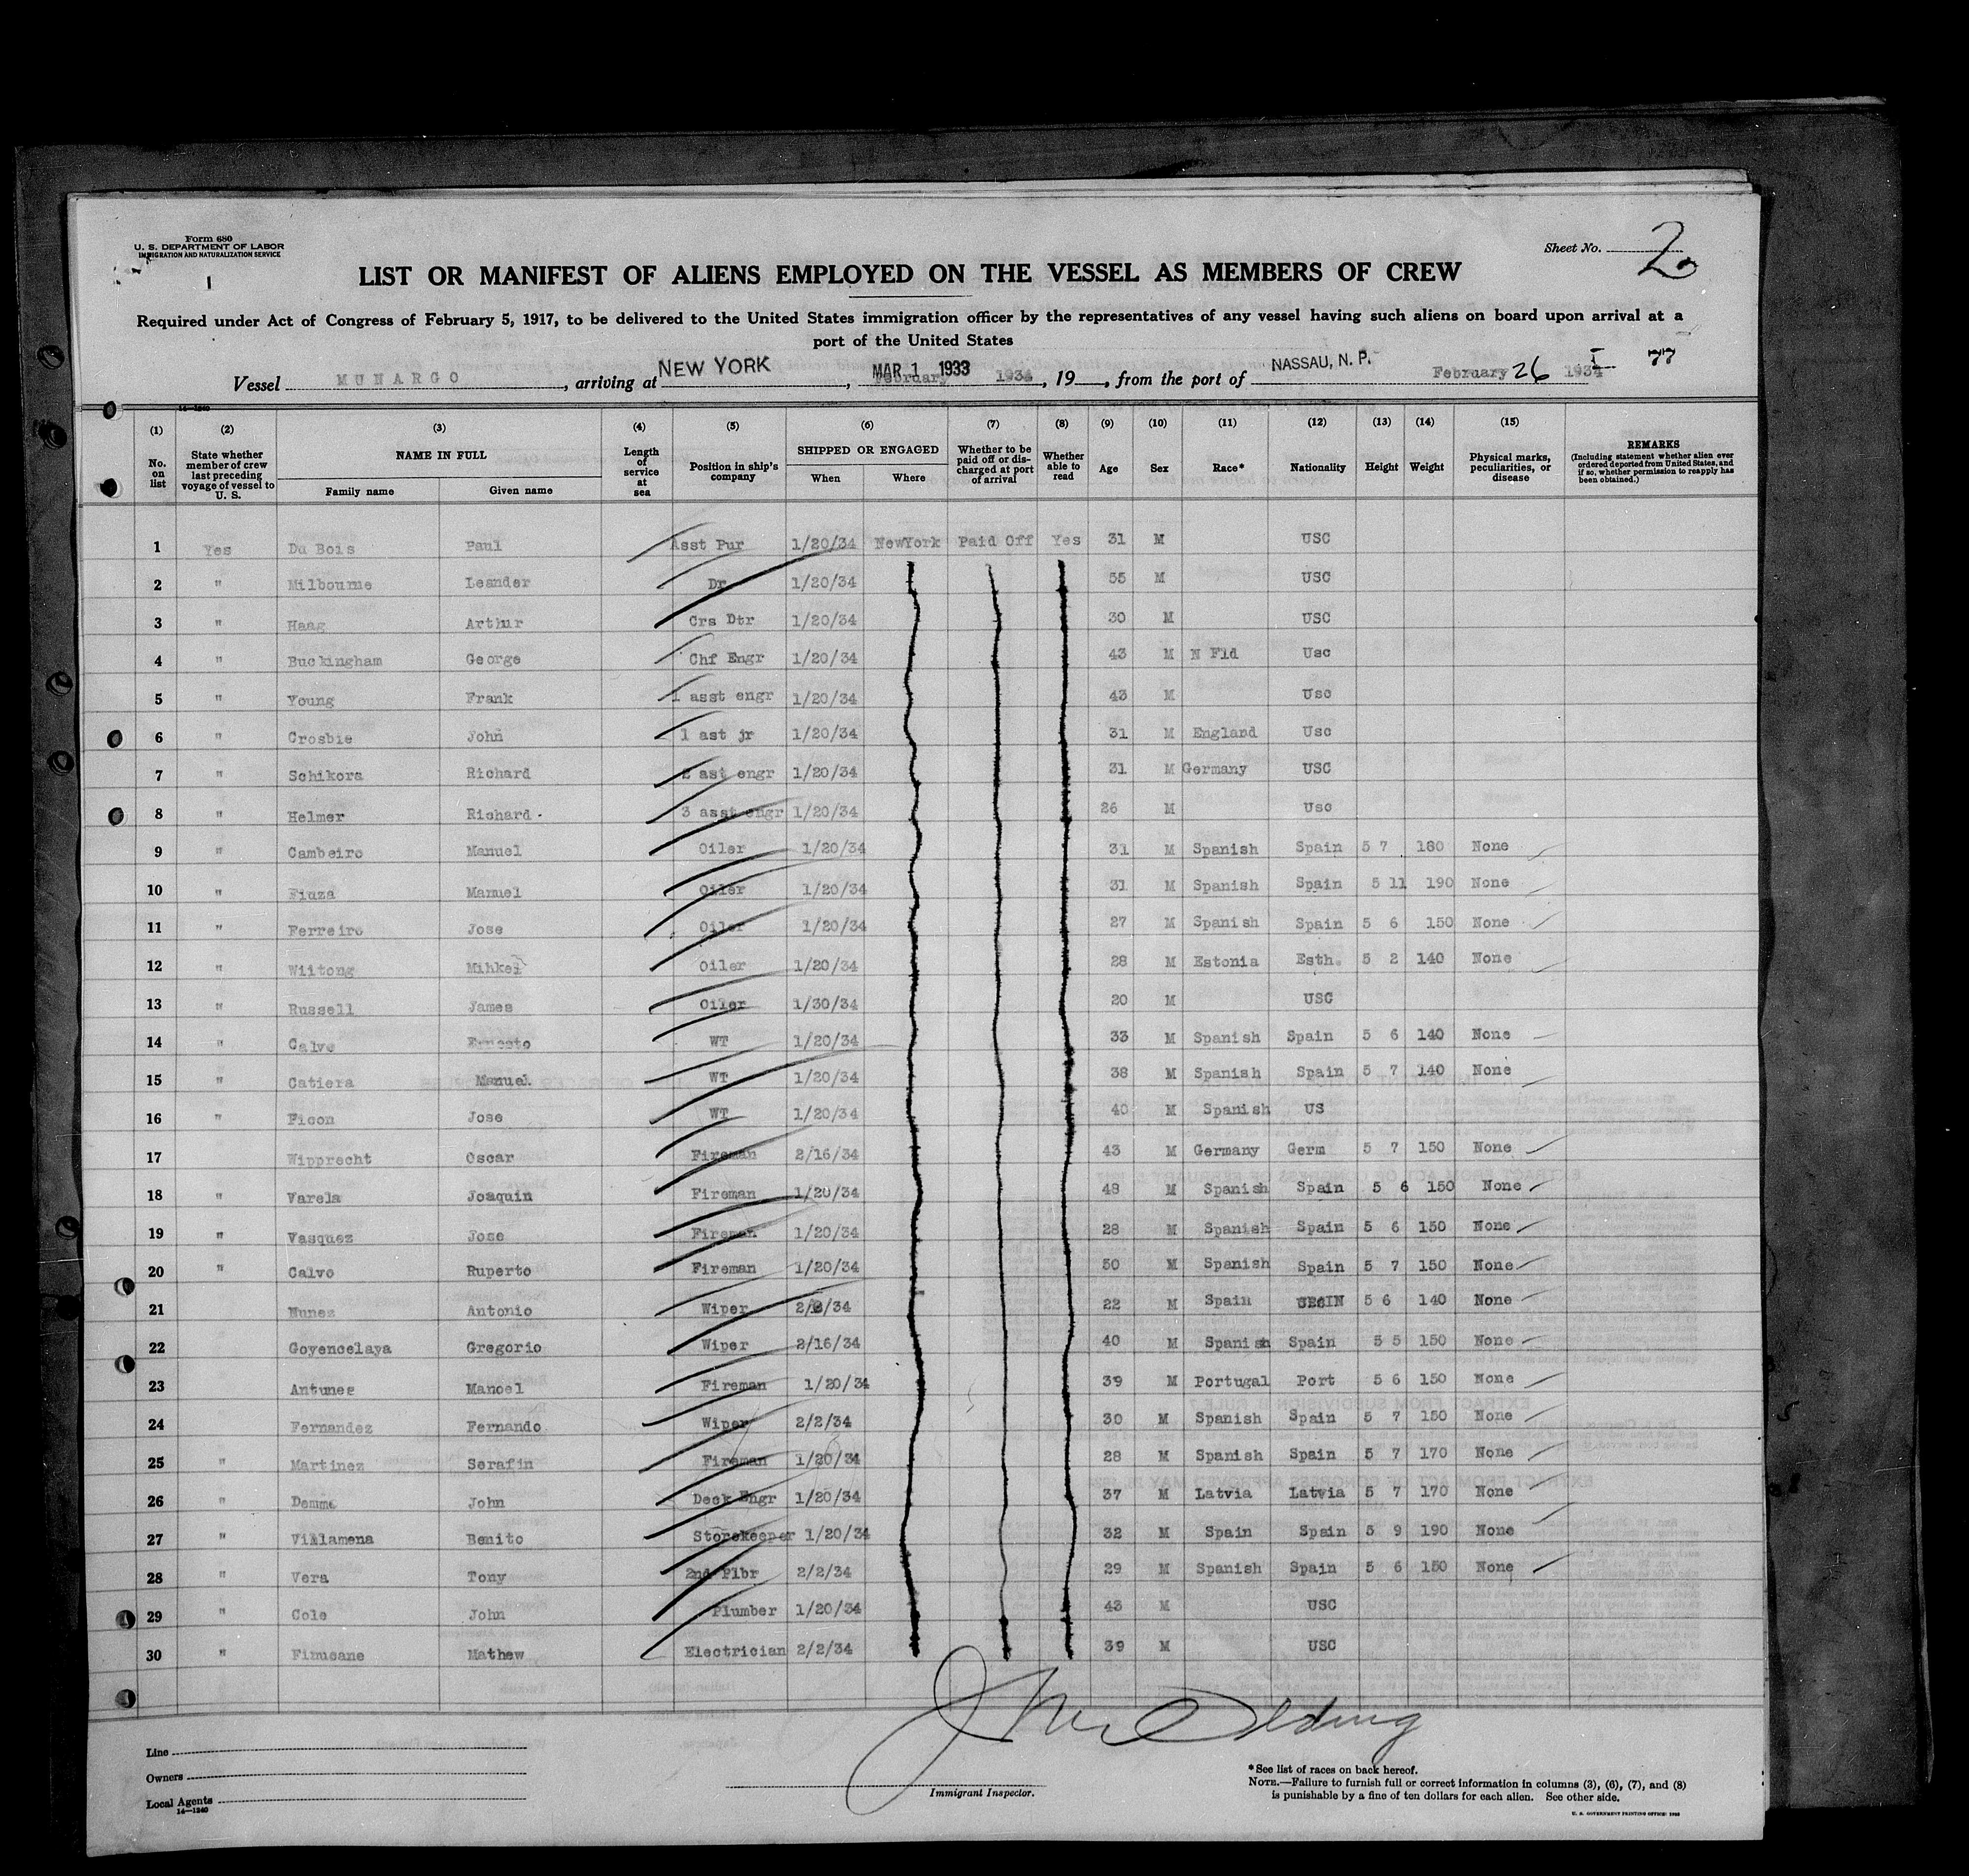 Form 680
U. S. DEPARTMENT OF LABOR
IMMIGRATION AND NATURALIZATION SERVICE
1
Sheet No. 2
LIST OR MANIFEST OF ALIENS EMPLOYED ON THE VESSEL AS MEMBERS OF CREW
Required under Act of Congress of February 5, 1917, to be delivered to the United States immigration officer by the representatives of any vessel having such aliens on board upon arrival at a
port of the United States
Vessel MUNARGO, arriving at NEW YORK, MAR 1 1933 February 1934, 19, from the port of NASSAU, N. P. February 26 1934 I 77
14—1240
(1) (2) (3) (4) (5) (6) (7) (8) (9) (10) (11) (12) (13) (14) (15)
No. on list State whether member of crew last preceding voyage of vessel to U. S. NAME IN FULL Family name Given name Length of service at sea Position in ship's company SHIPPED OR ENGAGED When Where Whether to be paid off or discharged at port of arrival Whether able to read Age Sex Race* Nationality Height Weight Physical marks, peculiarities, or disease REMARKS (Including statement whether alien ever ordered deported from United States, and if so, whether permission to reapply has been obtained.)
1 Yes Du Bois Paul Asst Pur 1/20/34 NewYork Paid Off Yes 31 M USC
2 " Milbourne Leander Dr 1/20/34 55 M USC
3 " Haag Arthur Crs Dtr 1/20/34 30 M USC
4 " Buckingham George Chf Engr 1/20/34 43 M N Fld Usc
5 " Young Frank 1 asst engr 1/20/34 43 M Usc
6 " Crosbie John 1 ast jr 1/20/34 31 M England Usc
7 " Schikora Richard 2 ast engr 1/20/34 31 M Germany USC
8 " Helmer Richard. 3 asst engr 1/20/34 26 M Usc
9 " Cambeiro Manuel Oiler 1/20/34 31 M Spanish Spain 5 7 160 None
10 " Fiuza Manuel Oiler 1/20/34 31 M Spanish Spain 5 11 190 None
11 " Ferreiro Jose Oiler 1/20/34 27 M Spanish Spain 5 6 150 None
12 " Wiitong Mihkel Oiler 1/20/34 28 M Estonia Esth. 5 2 140 None
13 " Russell James Oiler 1/30/34 20 M USC
14 " Calve Ernesto WT 1/20/34 33 M Spanish Spain 5 6 140 None
15 " Catiera Manuel WT 1/20/34 38 M Spanish Spain 5 7 140 None
16 " Ficon Jose WT 1/20/34 40 M Spanish US
17 Wipprecht Oscar Fireman 2/16/34 43 M Germany Germ 5 7 150 None
18 " Varela Joaquin Fireman 1/20/34 48 M Spanish Spain 5 6 150 None
19 " Vasquez Jose Fireman 1/20/34 28 M Spanish Spain 5 6 150 None
20 " Calvo Ruperto Fireman 1/20/34 50 M Spanish Spain 5 7 150 None
21 Nunez Antonio Wiper 22 M Spain 5 6 140 None
22 Goyencelaya Gregorio Wiper 2/16/34 40 M Spanish Spain 5 5 150 None
23 Antunes Manoel Fireman 1/20/34 39 M Portugal Port 5 6 150 None
24 Fernandez Fernando Wiper 2/2/34 30 M Spanish Spain 5 7 150 None
25 " Martinez Serafin Fireman 1/20/34 28 M Spanish Spain 5 7 170 None
26 " Demme John Deck Engr 1/20/34 37 M Latvia Latvia 5 7 170 None
27 " Villamena Benito Storekeeper 1/20/34 32 M Spain Spain 5 9 190 None
28 " Vera Tony 2nd Plbr 2/2/34 29 M Spanish Spain 5 6 150 None
29 " Cole John Plumber 1/20/34 43 M USC
30 " Finucane Mathew Electrician 2/2/34 39 M USC
Line
Owners
Local Agents
14—1240
Immigrant Inspector.
*See list of races on back hereof.
NOTE.—Failure to furnish full or correct information in columns (3), (6), (7), and (8)
is punishable by a fine of ten dollars for each alien. See other side.
U. S. GOVERNMENT PRINTING OFFICE: 1933